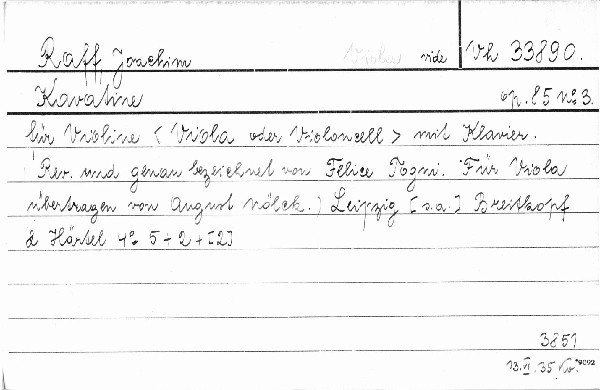 Raff, Joachim Viola vide Vh 33890.
Kavatine op. 85 No 3.
für Violine < Viola oder Violoncell > mit Klavier.
(Rev. und genau bezeichnet von Felice Togni. Für Viola
übertragen von August Nölck.) Leipzig [s.a.] Breitkopf
& Härtel 4° 5+2+[2]
3851
13.VI.35 9092